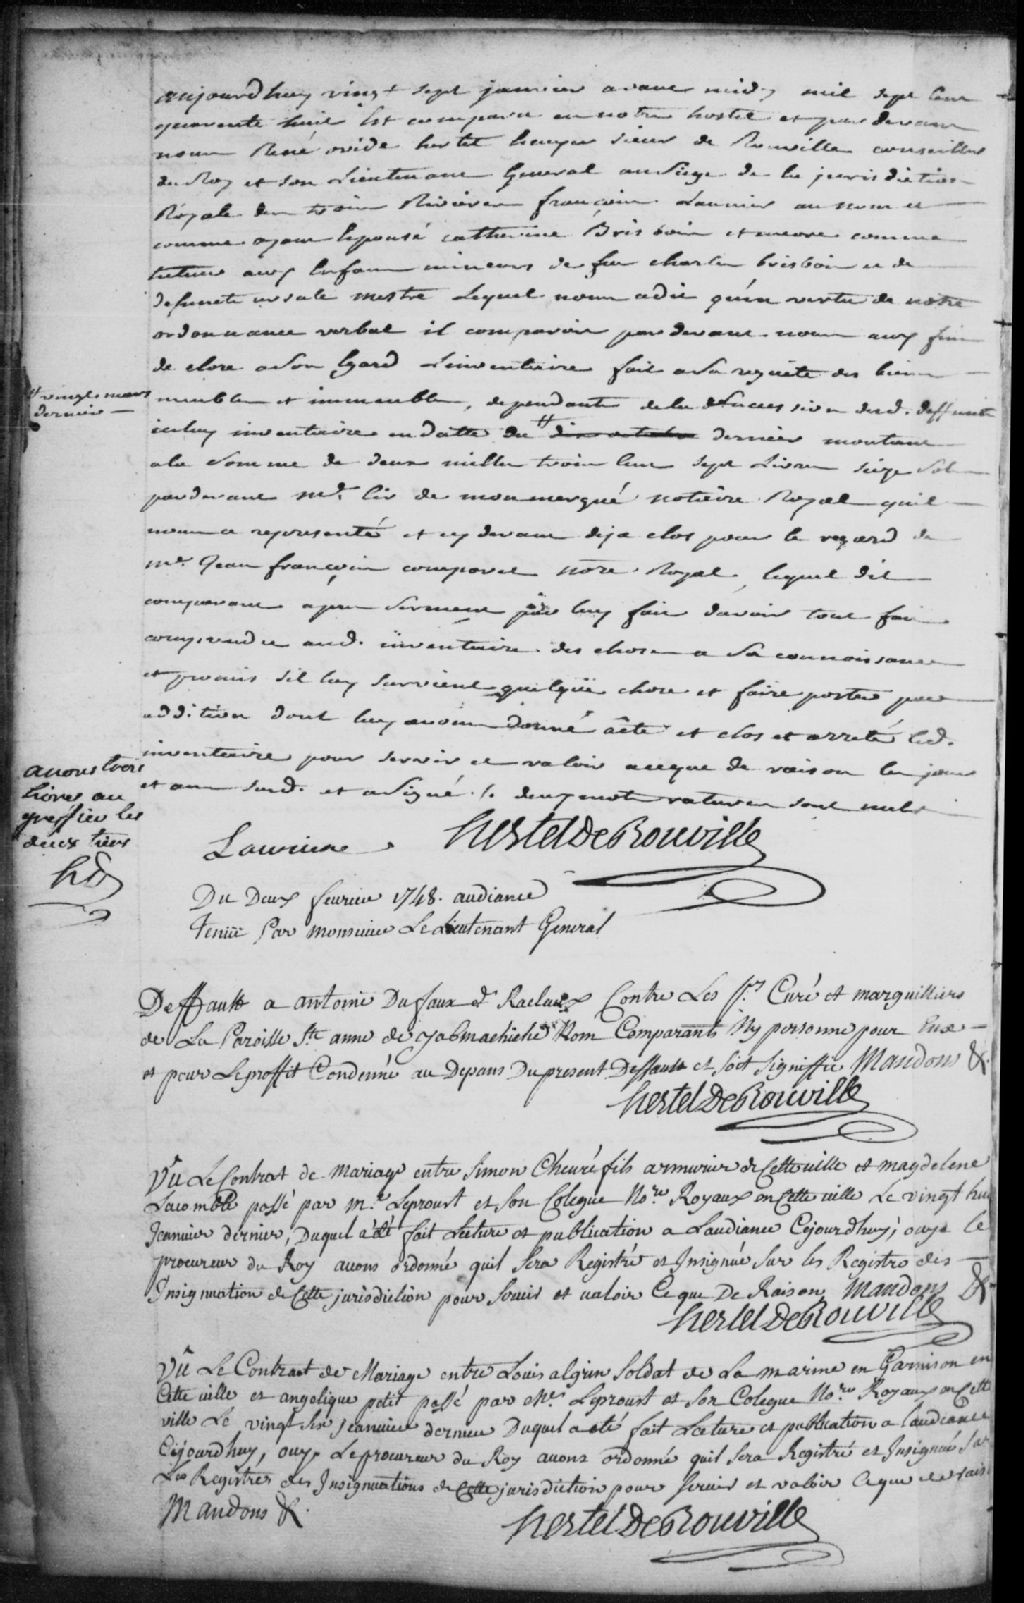 aujourdhuy vingt sept janvier avant midy mil sept cent
quarente huit Est comparu en notre hostel et par devant
nous René ovide hertel Ecuyer sieur de Rouville conseiller
du Roy et son Lieutenant General au Siege de la jurisdiction
Royale des trois Rivieres françois Launier au nom et
comme ayant Epousé catherine Brisboin et encore comme
tuteur aux Enfans mineurs de feu charles brisboin et de
defuncte ursule mestre Lequel nous a dit qu'en vertu de notre
ordonnance verbal il comparoit par devant nous aux fins
de clore a son Egard Linventaire fait a sa requête des biens
meubles et immeubles, dependants de la de succession dud. deffunt
iceluy inventaire en datte du # dernier montant
a la Somme de deux milles trois Cent sept Livres seize Sols
par devant Me. lir de monmerqué notaire Royal quil
nous a representé et cy devant deja clos pour le regard de
Me. Jean françois comparet Notre. Royal, lequel dit
comparant apres Serment par luy fait davoir tout fait
comprendre aud. inventaire des choses a Sa connoissance
et promis sil luy survient quelque chose et faire porter par
addition dont luy avons donné acte et clos et arreté led.
inventaire pour servir et valoir ce que de raison les jour
et an susd. et a Signé. les deux mots raturer sont nuls
# vingt mars
dernier
avons trois
livres au
greffier les
deux tiers
hd
Launier
hertelDeRouville
Du Deux fevrier 1748. audiance
Tenuë Par monsieur Le Lieutenant General
Deffault a antoine Dufaux dt Contre Les Srs Curé et marguilliers
de La Paroisse Ste anne de yabmachiche Nom Comparants Ny personne pour Eux
et pour Leproffit Condenné au Depans Dupresent Deffault et soit Signiffié Mandons &.
hertelDeRouville
Vû Le Contrat de Mariage entre Simon Cheuré fils armurier de Cette ville et magdelene
Lacomble passé par Me. Leproust et son Colegue Nore Royaux en Cette ville Le vingt huit
Jeanvier dernier; Duquel a été fait Lecture et publication a Laudiance Cejourdhuy; ouy le
procureur du Roy avons ordonné quil Sera Registré et Insignué Sur les Registre des
Insignuation de Cette jurisdiction pour Servir et valoir Ce que De Raison, Mandons &.
hertelDeRouville
Vû Le Contract de Mariage entre Louis algrin Soldat de La marine en Garnison en
Cette ville et angelique petit passé par Me. Leproust et son Colegue Nore Royaux en Cette
ville Le vingt Six jeanvier dernier Duquel a eté fait Lecture et publication a laudiance
Cejourdhuy, ouy Le procureur du Roy avons ordonné quil Sera Registré et Insignué Sur
Les Registres des Insignuations de Cette jurisdiction pour Servir et valoir Ce que de rais
Mandons &.
hertelDeRouville